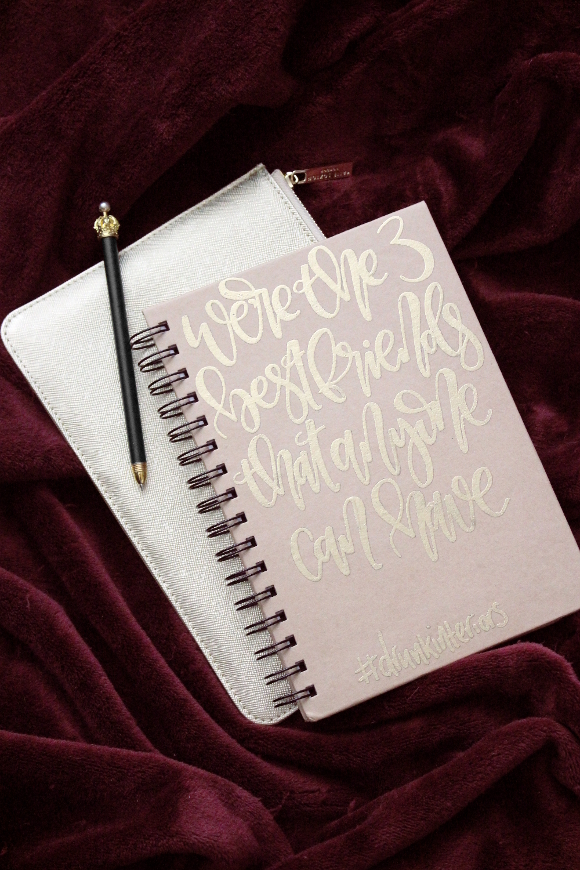 we're the 3
best friends
that anyone
can have
#drunkinteriors